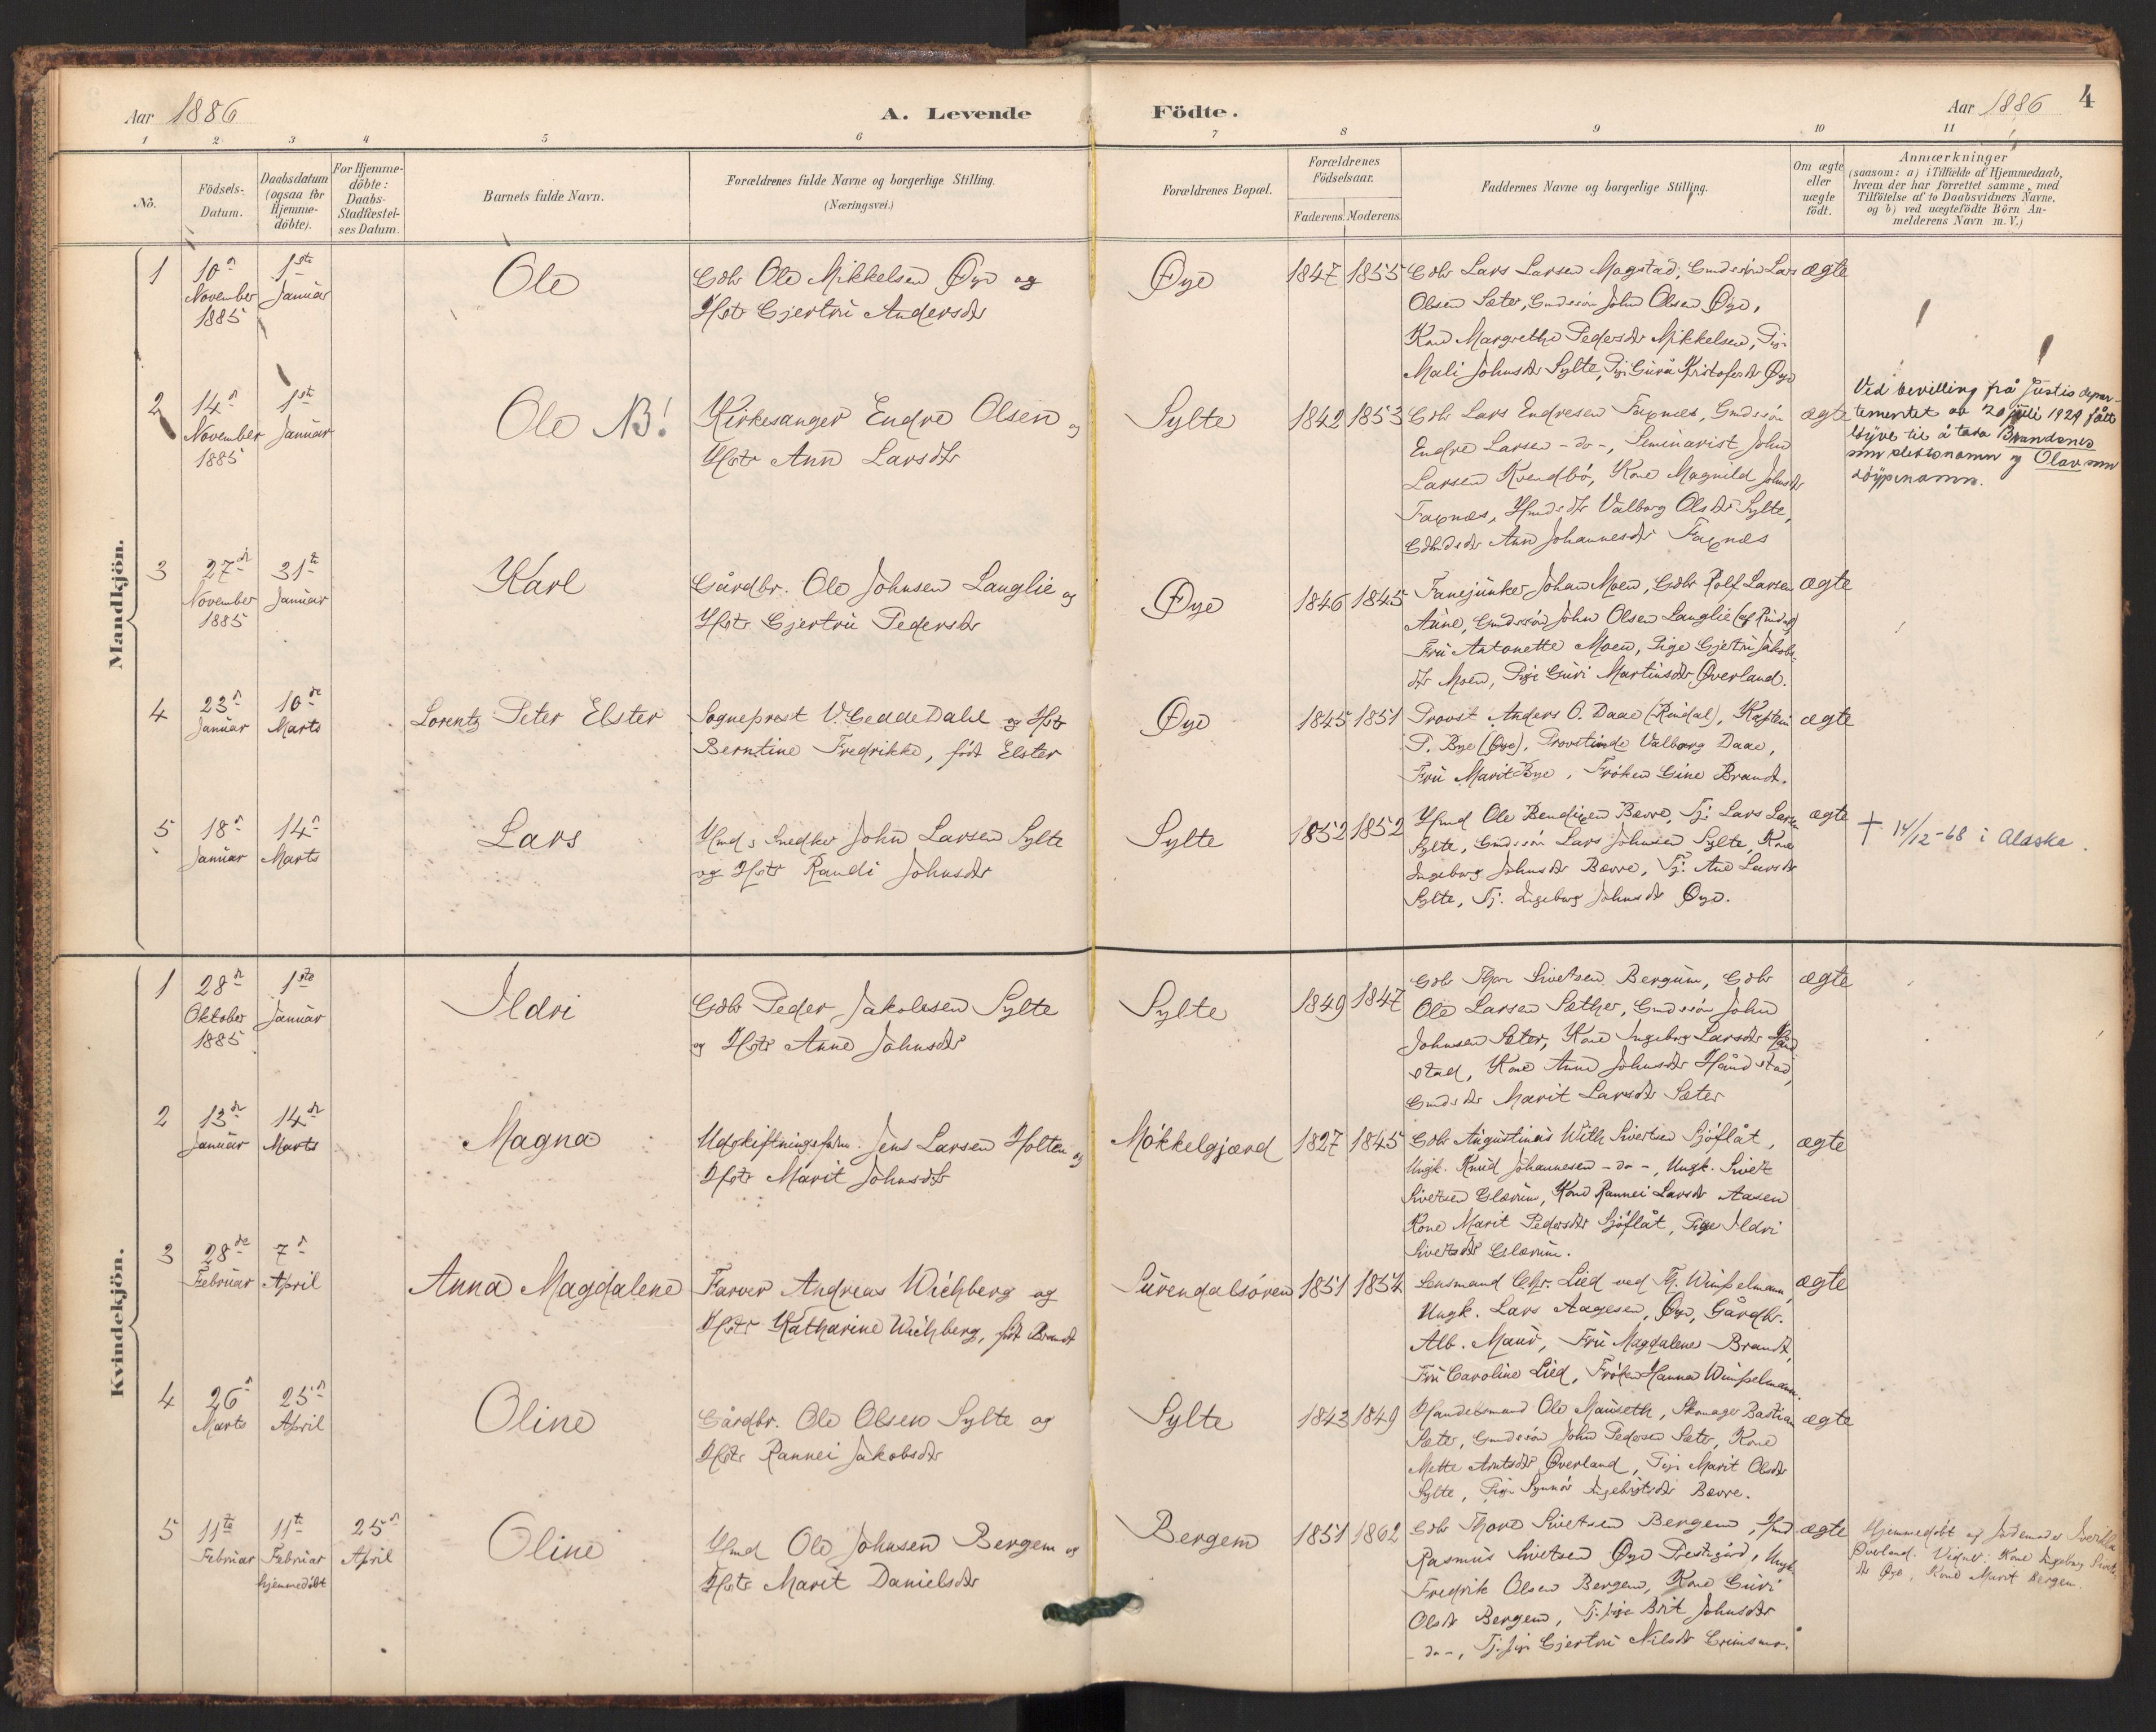 Aar 1886
A. Levende Födte.
Aar 1886 4
1 2 3 4 5 6 7 8 9 10 11
No.
Födsels-
Datum.
Daabsdatum
(ogsaa for
Hjemme-
döbte).
For Hjemme-
döbte:
Daabs-
Stadfæstel-
ses Datum.
Barnets fulde Navn.
Forældrenes fulde Navne og borgerlige Stilling.
(Næringsvei.)
Forældrenes Bopæl.
Forældrenes
Födselsaar.
Faderens. Moderens.
Faddernes Navne og borgerlige Stilling.
Om ægte
eller
uægte
födt.
Anmærkninger
(saasom: a) i Tilfælde af Hjemmedaab,
hvem der har forrettet samme, med
Tilföielse af to Daabsvidners Navne.
og b) ved uægtefödte Börn An-
melderens Navn m.V.)
Mandkjön.
1
10n
November
1885
1ste
Januar
Ole
Gdbr Ole Mikkelsen Øye og
Hstr Gjertru Andersdtr
Øye
1847 1855
Gdbr Lars Larsen Mogstad, Gmdssön Lars
Olsen Sæter, Gmdssön John Olsen Øye,
Kone Margrethe Pedersdtr Mikkelsen, Pige
Mali Johnsdtr Sylte, Pige Guru Kristofersdtr Øye
ægte
2
14n
November
1885
1ste
Januar
Ole NB!
Kirkesanger Endre Olsen og
Hstr Ann Larsdtr
Sylte
1842 1853
Gdbr Lars Endresen Faxnæs, Gmdssön
Endre Larsen -do-, Seminarist John
Larsen Kvendbö, Kone Magnild Johnsdtr
Faxnæs, Hmdsdtr Valborg Olsdtr Sylte,
Gdmdsdtr Ann Johannesdtr Faxnæs
ægte
Ved bevilling frå Justisdepar-
tementet av 20 juli 1929 fått
löyve til å taka Brandsnes
som slektsnamn og Olav som
döypenamn.
3
27de
November
1885
31te
Januar
Karl
Gårdbr. Ole Johnsen Langlie og
Hstr Gjertru Pedersdtr
Øye
1846 1845
Fanejunker Johan Moen, Gdbr Rolf Larsen
Aune, Gmdssön John Olsen Langlie (af Rindal)
Fru Antonette Moen, Pige Gjertru Jakobs-
dtr Moen, Pige Guri Martinsdtr Øverland.
ægte
4
23n
Januar
10de
Marts
Lorentz Peter Elster
Sogneprest V. Gedde Dahl og Hstr
Berntine Fredrikke, född Elster
Øye
1845 1851
Provst Anders O. Daae (Rindal), Kaptein
P. Bye (Øye), Provstinde Valborg Daae,
Fru Marit Bye, Fröken Gine Brandt.
ægte
5
18n
Januar
14n
Marts
Lars
Hmd, Snedker John Larsen Sylte
og Hstr Randi Johnsdtr
Sylte
1852 1852
Hmd Ole Bendixen Bævre, Tj. Lars Larsen
Sylte, Gmdssön Lars Johnsen Sylte, Kone
Ingeborg Johnsdtr Bævre, Tj. Ane Larsdtr
Sylte, Tj. Ingeborg Johnsdtr Øye.
ægte
† 14/12-68 i Alaska.
Kvindekjön.
1
28de
Oktober
1885
1ste
Januar
Ildri
Gdbr Peder Jakobsen Sylte
og Hstr Anne Johnsdtr
Sylte
1849 1847
Gdbr Thore Sivertsen Bergum, Gdbr
Ole Larsen Sæther, Gmdssön John
Johnsen Sæter, Kone Ingeborg Larsdtr Hånd-
stad, Kone Anne Johnsdtr Håndstad,
Gmdsdtr Marit Larsdtr Sæter
ægte
2
13de
Januar
14de
Marts
Magna
Udskiftningsform. Jens Larsen Holten og
Hstr Marit Johnsdtr
Mökkelgjærd
1827 1845
Gdbr Augustinus With Sivertsen Sjöflåt,
Ungk. Knud Johannesen -do-, Ungk. Sivert
Sivertsen Glærum, Kone Rannei Larsdtr Aasen
Kone Marit Pedersdtr Sjöflåt, Pige Ildri
Sivertsdtr Glærum.
ægte
3
28de
Februar
7n
April
Anna Magdalene
Farver Andreas Wichberg og
Hstr Katharine Wichberg, född Brandt
Surendalsören
1851 1852
Lensmand Chr. Lied ved Th. Winsnelmann,
Ungk. Lars Aagesen, Øye, Gårdbr.
Alb. Mauö, Fru Magdalene Brandt,
Fru Caroline Lied, Fröken Hanna
ægte
4
26n
Marts
25n
April
Oline
Gårdbr. Ole Olsen Sylte og
Hstr Rannei Jakobsdtr
Sylte
1843 1849
Handelsmand Ole Mauseth, Skomager Bastian
Sæter, Gmdssön John Pedersen Sæter, Kone
Mette Arntsdtr Øverland, Pige Marit Olsdtr
Sylte, Pige Synnöv Ingebrigtsdtr Bævre.
ægte
5
11te
Februar
11te
Februar
hjemmedöbt
25n
April
Oline
Hmd Ole Johnsen Bergem og
Hstr Marit Danielsdtr
Bergem
1851 1862
Gdbr Thore Sivertsen Bergem, Hmd
Rasmus Sivertsen Øye Prestegård, Ungk.
Fredrik Olsen Bergem, Kone Guri
Olsdtr Bergem, Tj. pige Brit Johnsdtr
-do-, Tj. pige Gjertru Nilsdtr Grimsmo.
ægte
Hjemmedöbt af Jordemoder Sverikka
Øverland. Vidner: Kone Ingeborg Siverts-
dtr Øye, Kone Marit Bergem.